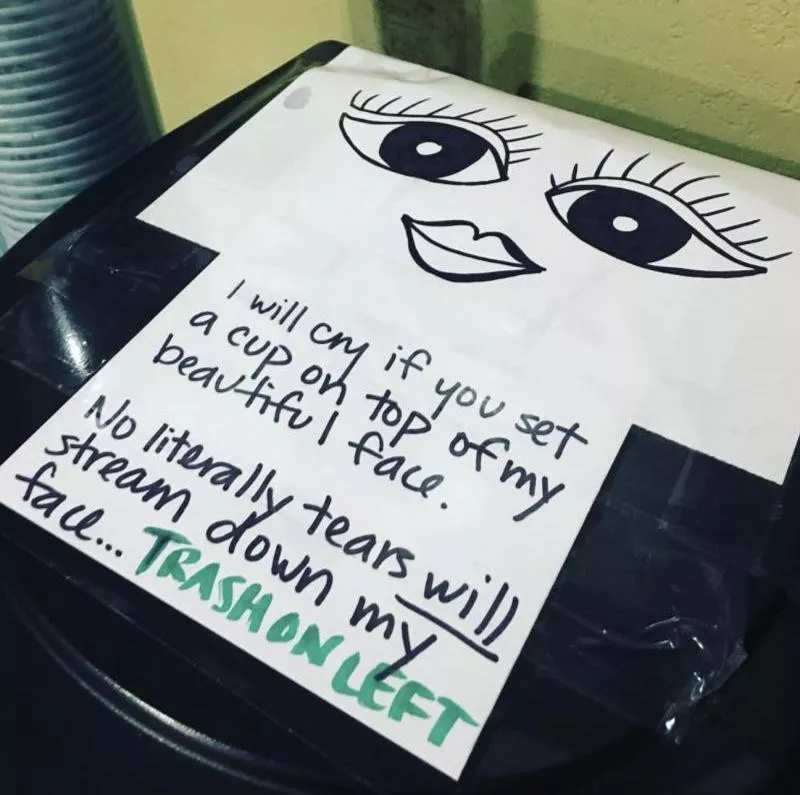 I will cry if you set
a cup on top of my
beautiful face.
No literally tears will
stream down my
face... TRASH ON LEFT